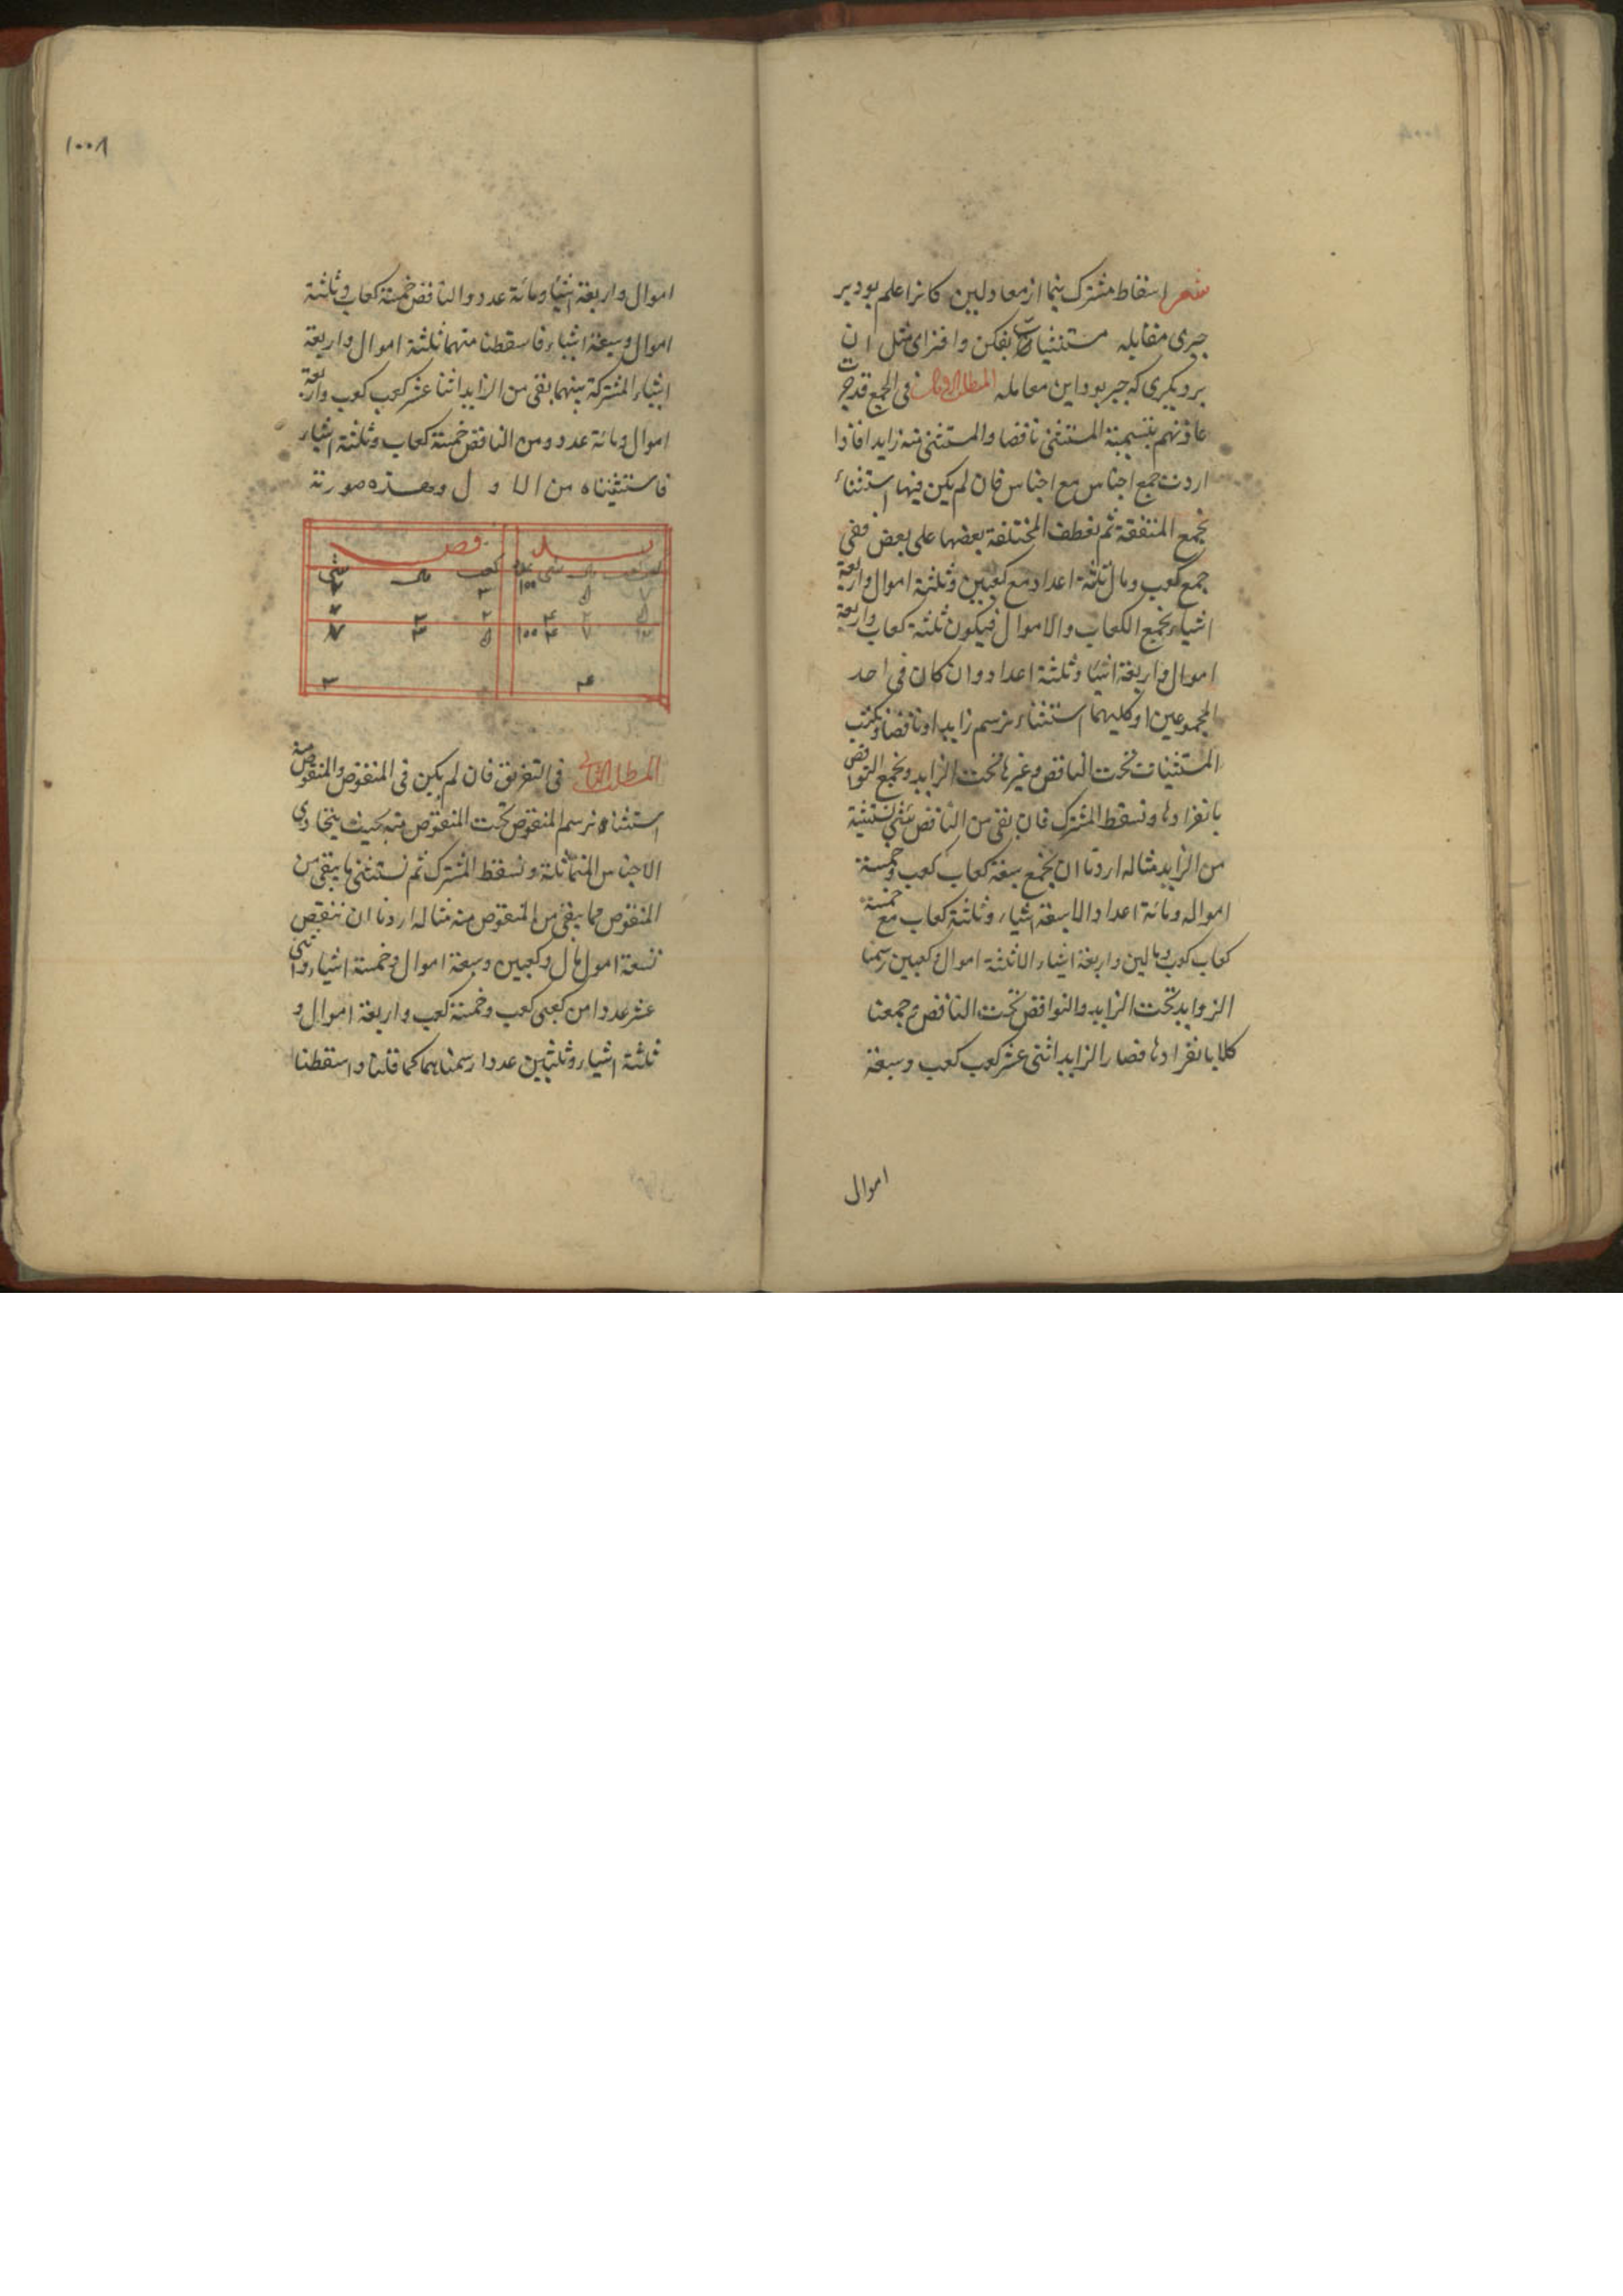 شعر اسقاط مشترک بنما از معادلین کانرا علم بود بر
جبری مقابله مستثنیات بفکن وافزای مثل ان
بر دیکری که جبر بود این معامله المطلب الاول فی الجمع قد جرت
عادتهم بتسمیة المستثنی ناقصا والمستثنی منه زایدا فاذا
اردت جمع اجناس مع اجناس فان لم یکن فیها استثناء
نجمع المتفقة ثم نعطف المختلفة بعضها علی بعض ففی
جمع کعب ومال ثلثة اعداد مع کعبین وثلثة اموال واربعة
اشیاء نجمع الکعاب والاموال فیکون ثلثة کعاب واربعة
اموال واربعة اشیا وثلثة اعداد وان کان فی احد
المجموعین او کلیهما استثناء نرسم زایدا وناقصا ونکتب
المستثنیات تحت الناقص وغیرها تحت الزاید ونجمع النواقص
بانفرادها ونسقط المشترک فان بقی من الناقص شی نستثنیه
من الزاید مثاله اردنا ان نجمع سبعة کعاب کعب وخمسة
امواله ومائة اعداد الا سبعة اشیاء وثلثة کعاب مع خمسة
کعاب کعب ومالین واربعة اشیاء الا ثلثة اموال وکعبین رسمنا
الزواید تحت الزاید والنواقص تحت الناقص ثم جمعنا
کلا بانفرادها فصار الزاید اثنی عشر کعب کعب وسبعة
اموال
۱۰۰۸
اموال واربعة اشیا ومائة عدد والناقص خمسة کعاب وثلثة
اموال وسبعة اشیاء فاسقطنا منهما ثلثة اموال واربعة
اشیاء المشترکة بینهما بقی من الزاید اثنا عشر کعب کعب واربعة
اموال ومائة عدد ومن الناقص خمسة کعاب وثلثة اشیاء
فاستثنیناه من الاول وهذه صورته
کعب مال شی
المطلب الثانی فی التفریق فان لم یکن فی المنقوص والمنقوص منه
استثناء نرسم المنقوص تحت المنقوص منه بحیث یتحاذی
الاجناس المتماثلة ونسقط المشترک ثم نستثنی ما یبقی من
المنقوص مما یبقی من المنقوص منه مثاله اردنا ان ننقص
تسعة امول مال وکعبین وسبعة اموال وخمسة اشیاء واثنی
عشر عددا من کعبی کعب وخمسة کعب واربعة اموال و
ثلثة اشیاء وثلثین عددا رسمناهما کما قلنا واسقطنا